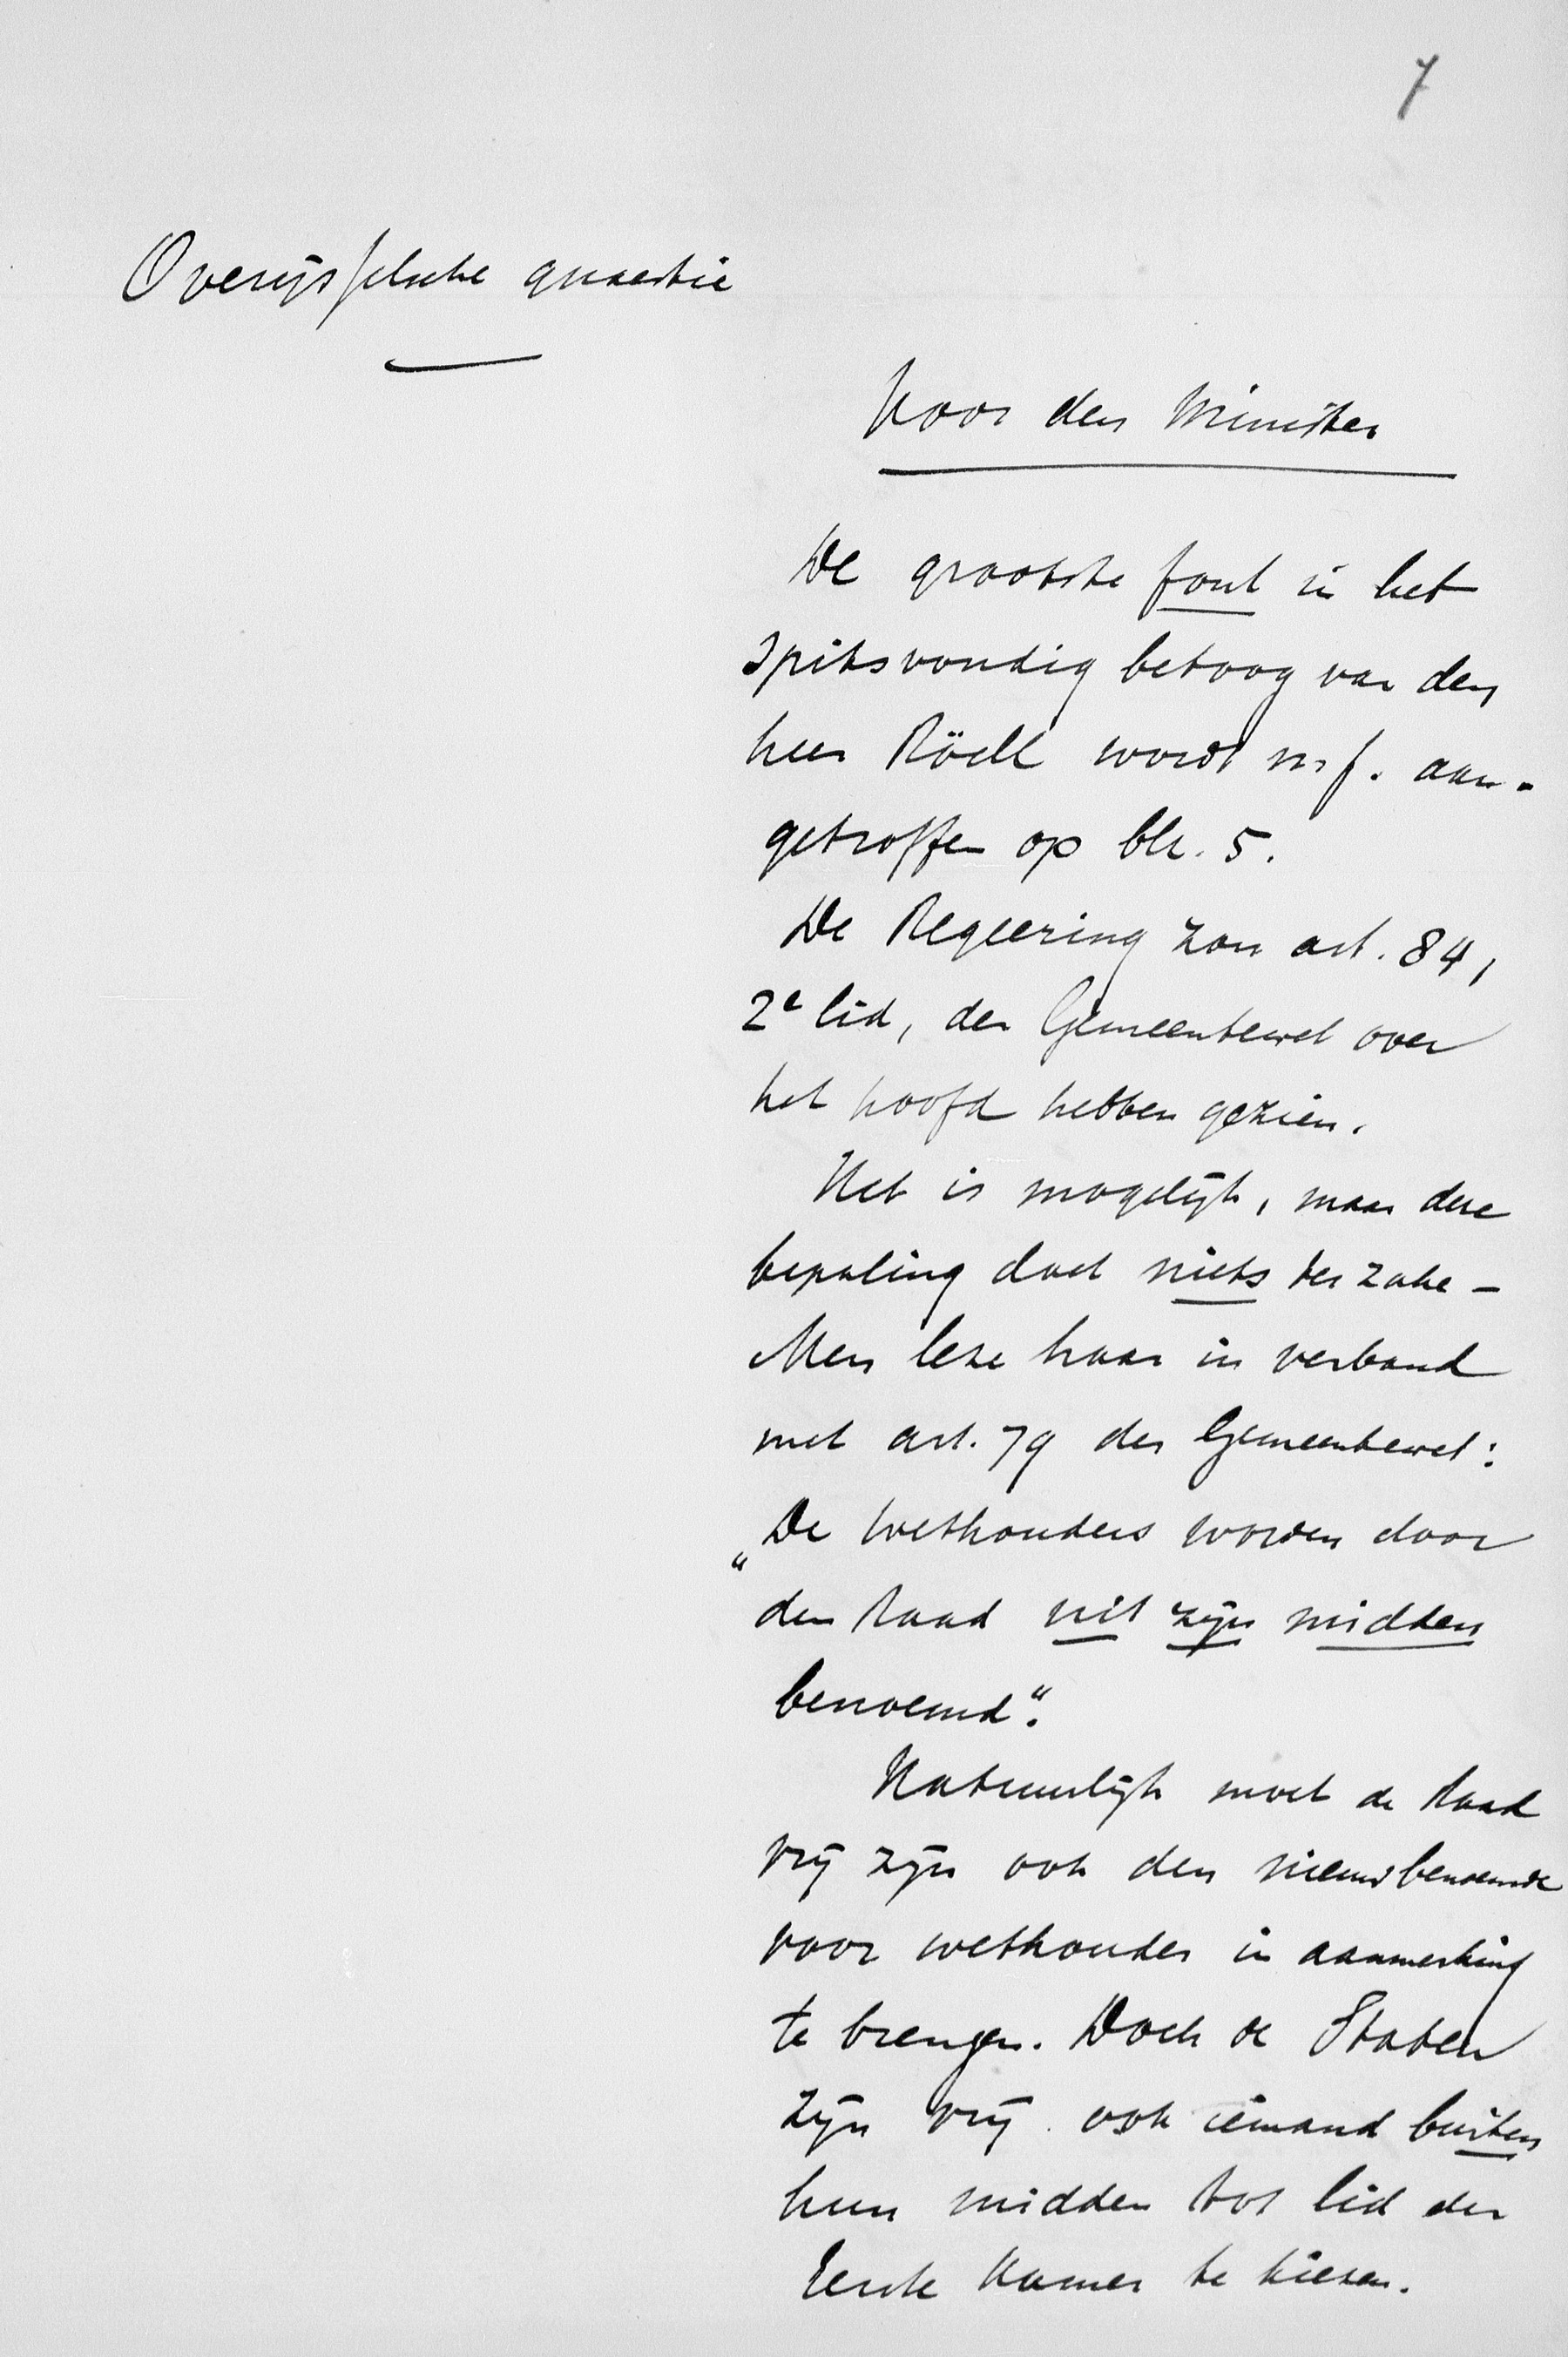 7
Overijsselsche quaestie
Voor den Minister
De grootste fout in het
spitsvondig betoog van den
heer Röell wordt m. i. aan-
getroffen op blz. 5.
De Regeering zou art. 84,
2e lid, der Gemeentewet over
het hoofd hebben gezien.
Het is mogelijk, maar deze
bepaling doet niets ter zake –
Men leze haar in verband
met art. 79 der Gemeentewet:
„De wethouders worden door
den Raad uit zijn midden
benoemd“.
Natuurlijk moet de Raad
vrij zijn ook den nieuwbenoemde
voor wethouder in aanmerking
te brengen. Doch de Staten
zijn vrij ook iemand buiten
hun midden tot lid der
Eerste Kamer te kiezen.